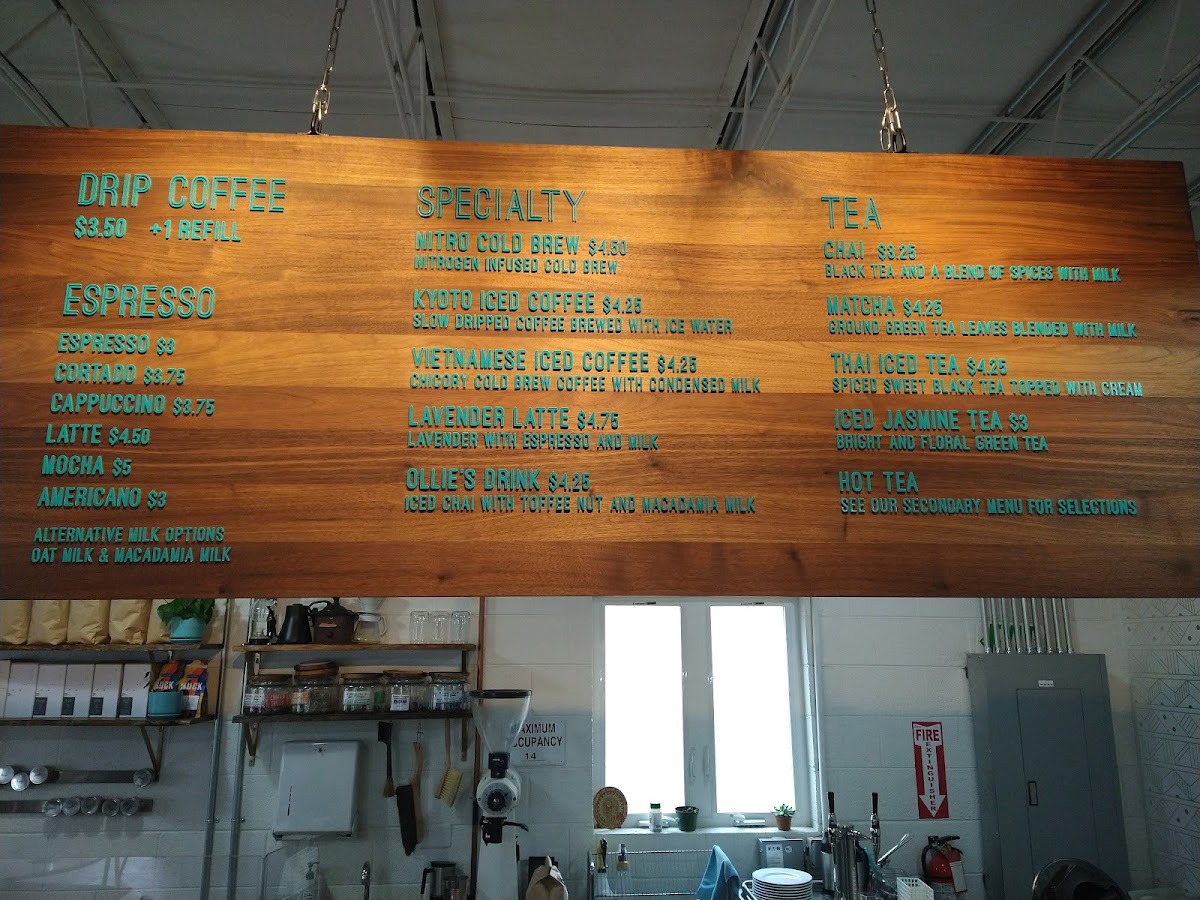 DRIP COFFEE
$3.50 +1 REFILL
ESPRESSO
ESPRESSO $3
CORTADO $3.75
CAPPUCCINO $3.75
LATTE $4.50
MOCHA $5
AMERICANO $3
ALTERNATIVE MILK OPTIONS
OAT MILK & MACADAMIA MILK
SPECIALTY
NITRO COLD BREW $4.50
NITROGEN INFUSED COLD BREW
KYOTO ICED COFFEE $4.25
SLOW DRIPPED COFFEE BREWED WITH ICE WATER
VIETNAMESE ICED COFFEE $4.25
CHICORY COLD BREW COFFEE WITH CONDENSED MILK
LAVENDER LATTE $4.75
LAVENDER WITH ESPRESSO AND MILK
OLLIE'S DRINK $4.25
ICED CHAI WITH TOFFEE NUT AND MACADAMIA MILK
TEA
CHAI $3.25
BLACK TEA AND A BLEND OF SPICES WITH MILK
MATCHA $4.25
GROUND GREEN TEA LEAVES BLENDED WITH MILK
THAI ICED TEA $4.25
SPICED SWEET BLACK TEA TOPPED WITH CREAM
ICED JASMINE TEA $3
BRIGHT AND FLORAL GREEN TEA
HOT TEA
SEE OUR SECONDARY MENU FOR SELECTIONS
14
FIRE
EXTINGUISHER